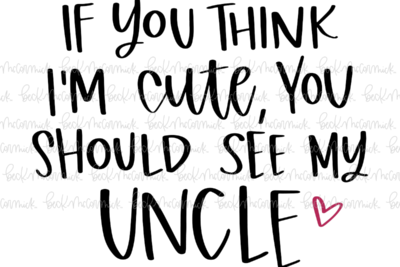 IF YOU THINK
I'M cute, YOU
SHOULD SEE MY
UNCLE